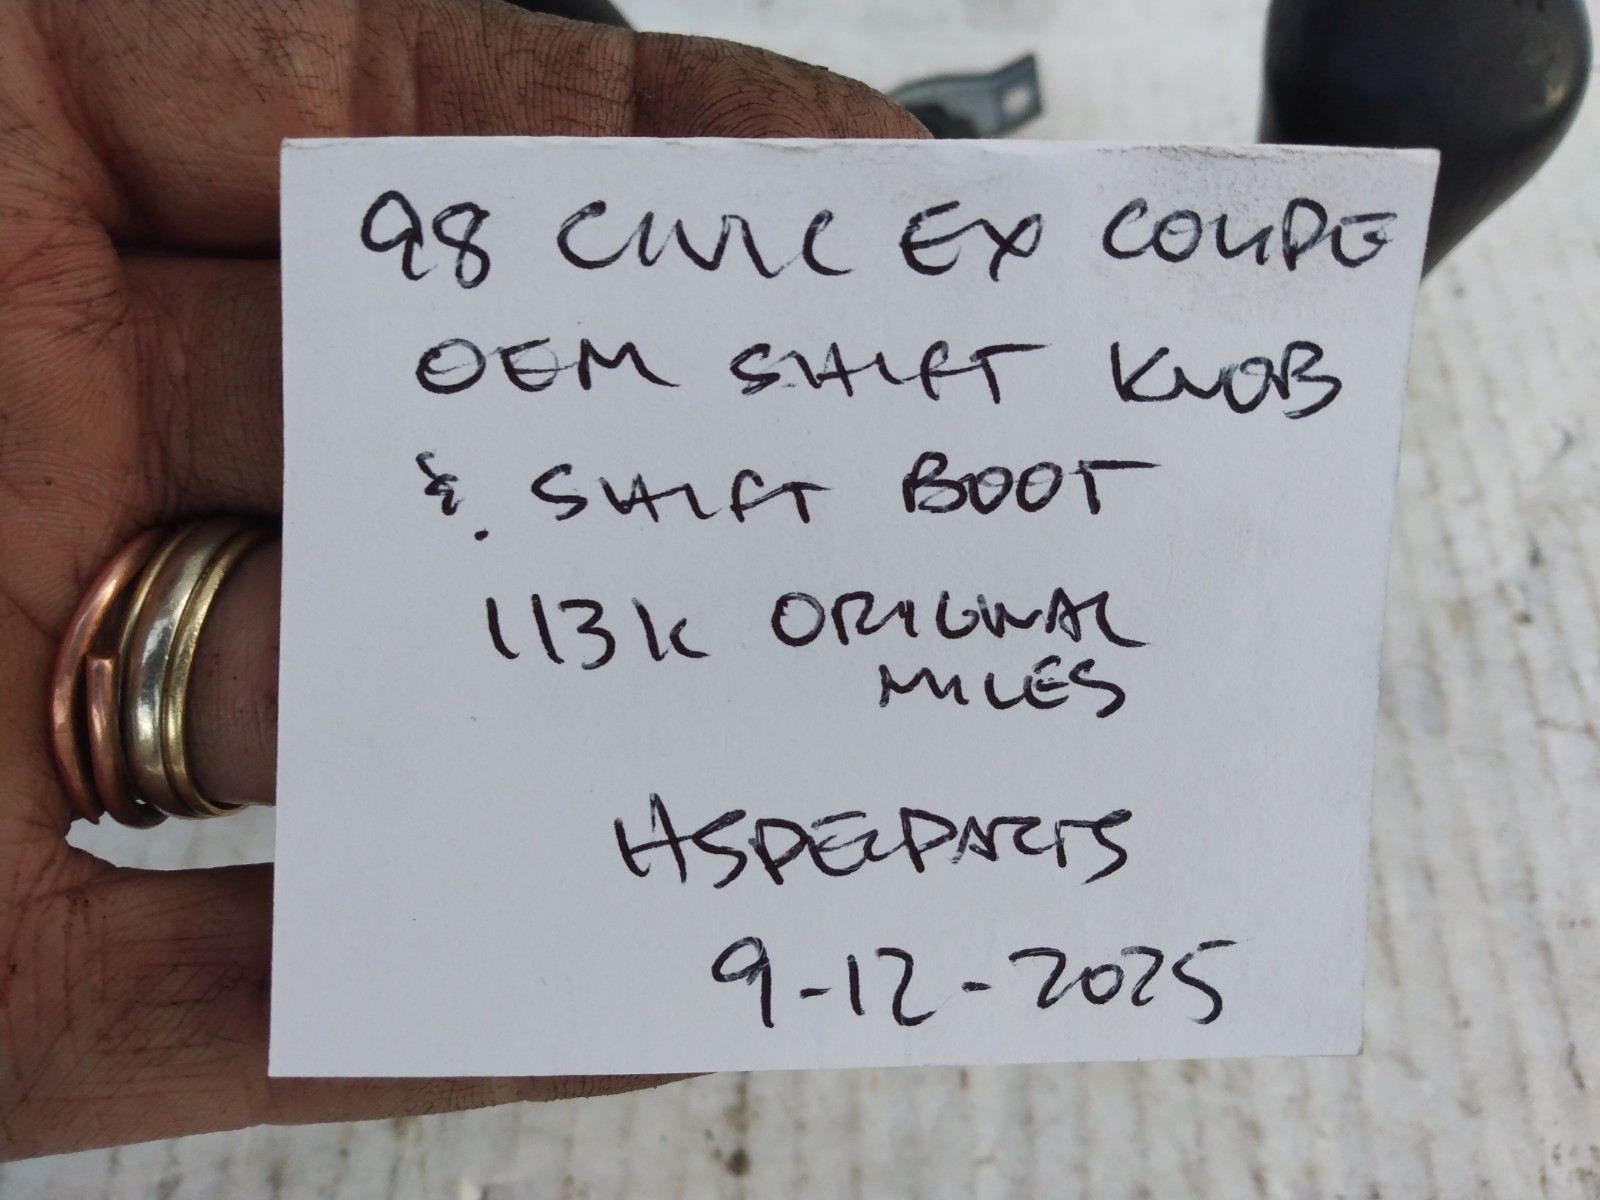 98 CIVIC EX COUPE
OEM SHIFT KNOB
&. SHIFT BOOT
113K ORIGINAL
MILES
HSPECPARTS
9-12-2025